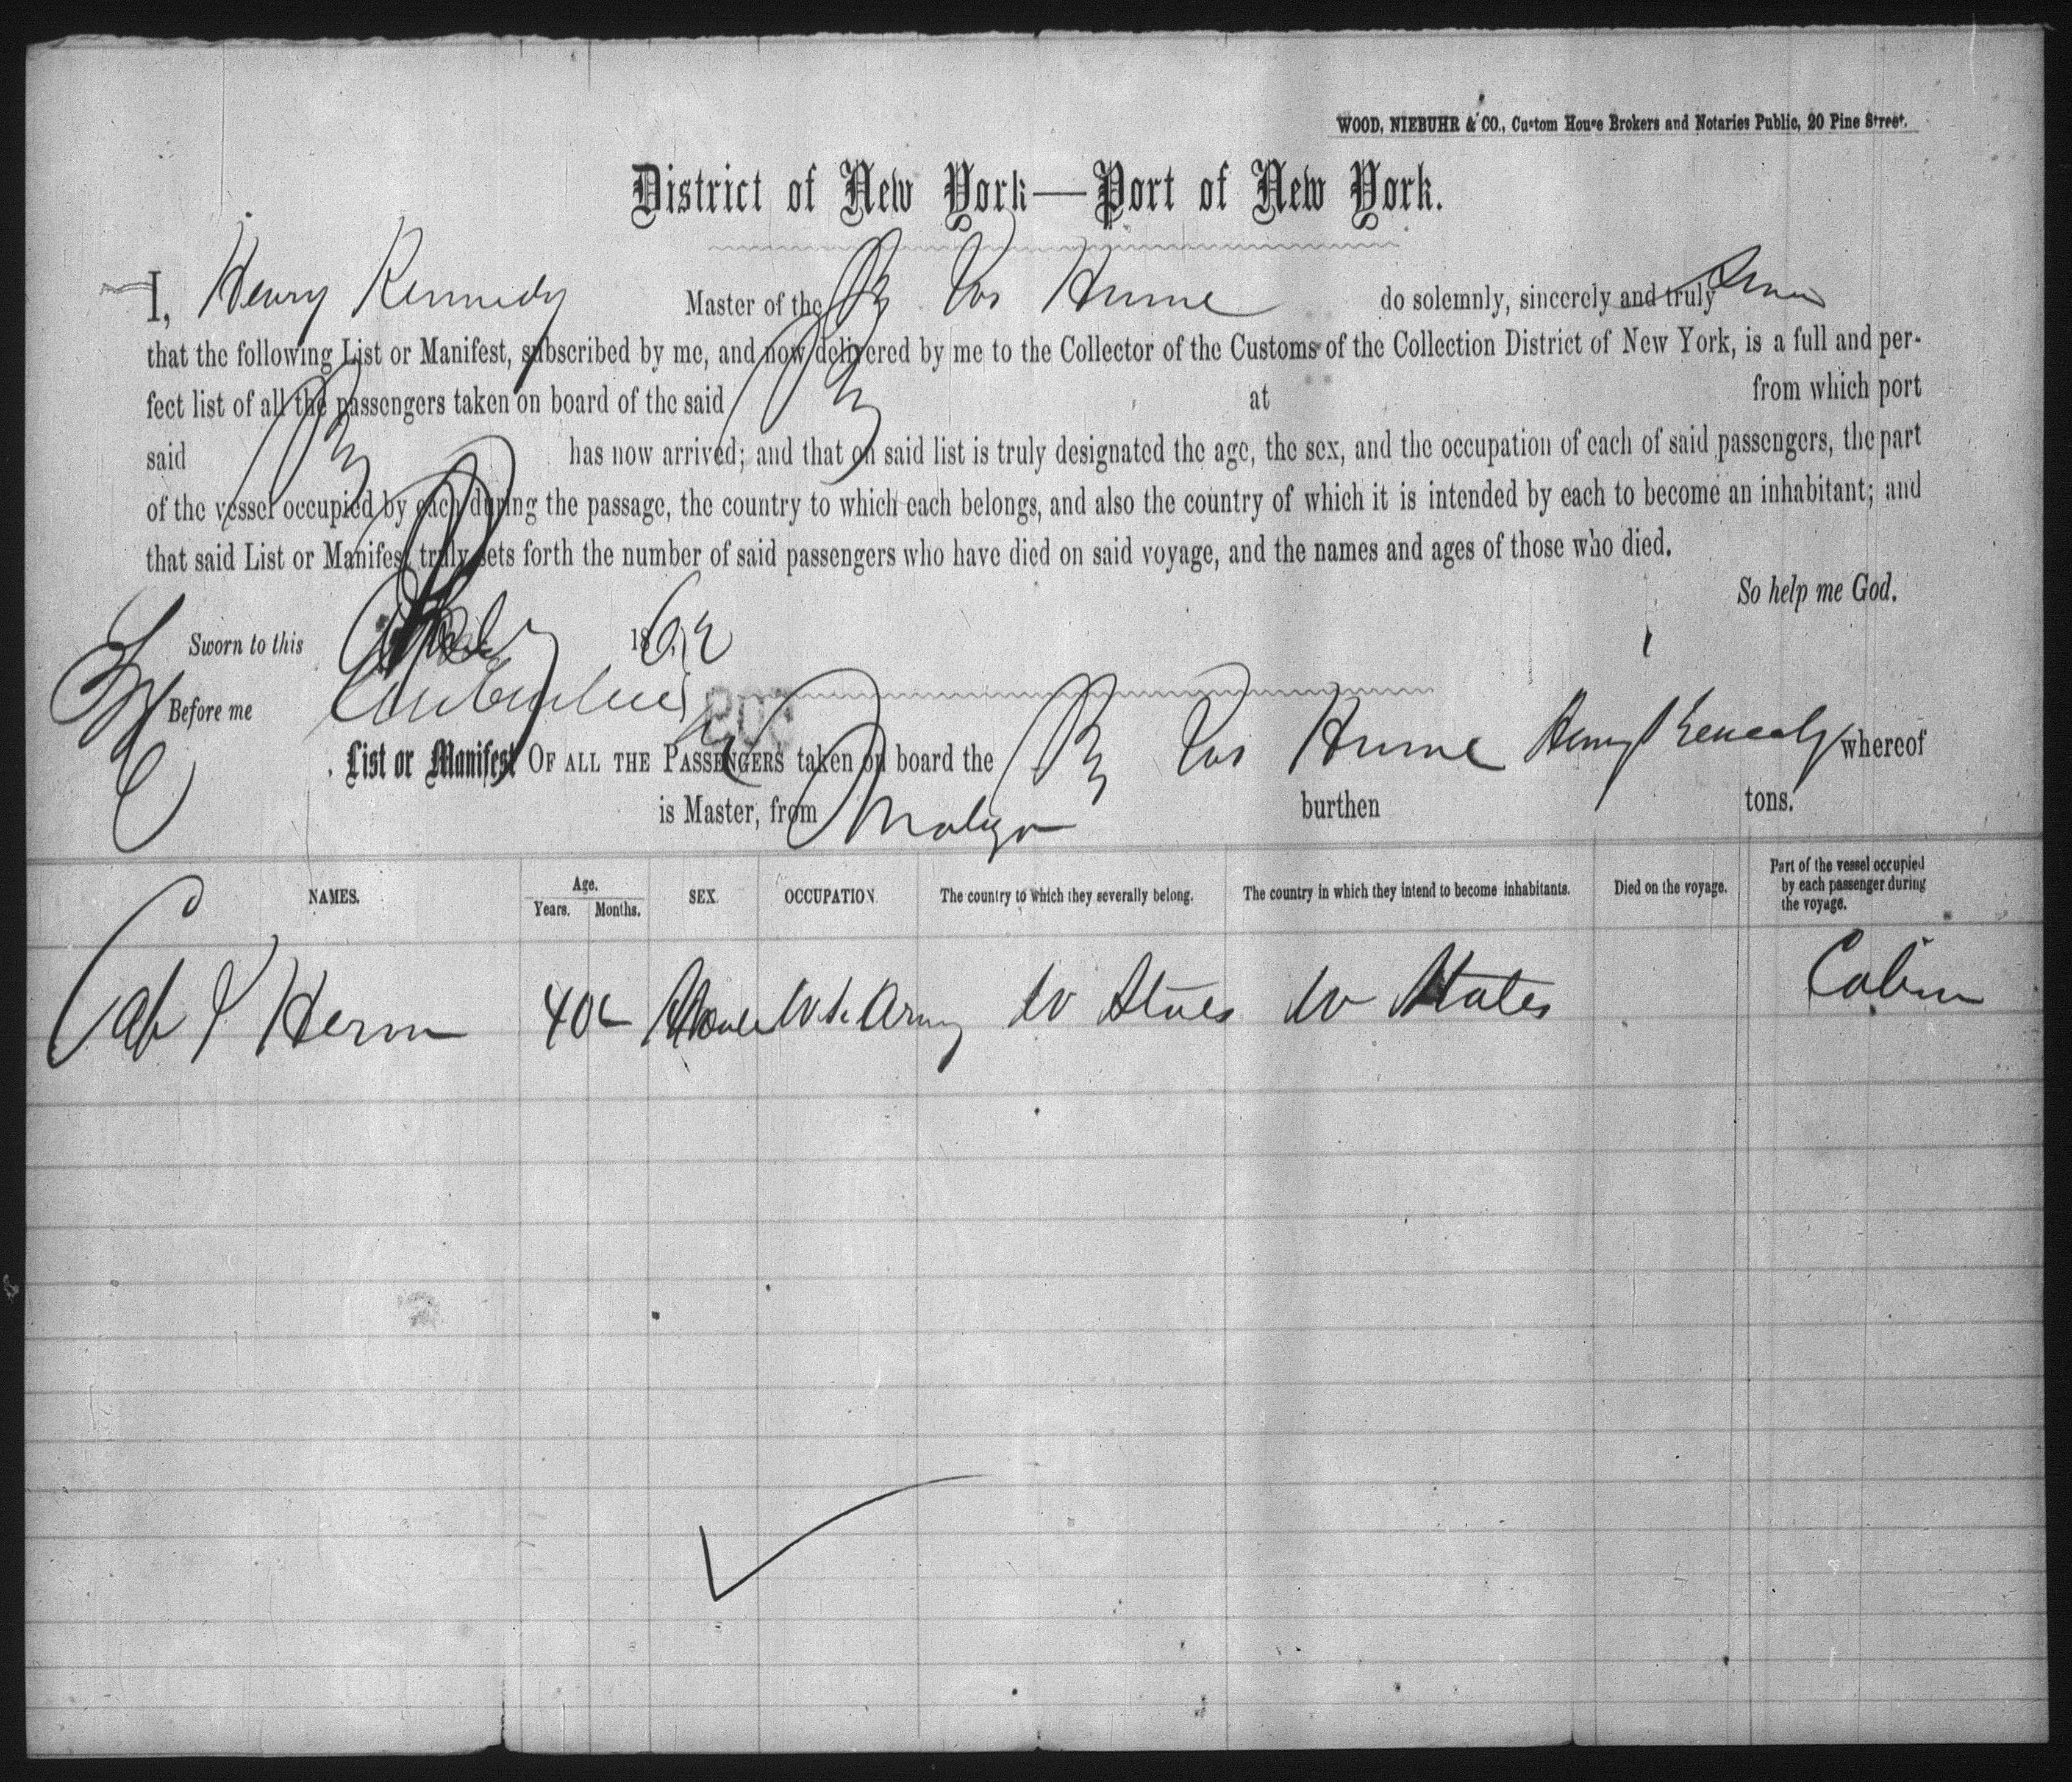 WOOD, NIEBUHR & CO., Custom House Brokers and Notaries Public, 20 Pine Street.
District of New York—Port of New York.
I, Henry Kennedy Master of the Hume do solemnly, sincerely and truly
that the following List or Manifest, subscribed by me, and now delivered by me to the Collector of the Customs of the Collection District of New York, is a full and per-
fect list of all the passengers taken on board of the said at from which port
said has now arrived; and that on said list is truly designated the age, the sex, and the occupation of each of said passengers, the part
of the vessel occupied by each during the passage, the country to which each belongs, and also the country of which it is intended by each to become an inhabitant; and
that said List or Manifest truly sets forth the number of said passengers who have died on said voyage, and the names and ages of those who died.
So help me God.
Sworn to this 18
Before me
List or Manifest OF ALL THE PASSENGERS taken on board the Hume Henry Kennedy whereof
is Master, from burthen tons.
NAMES. Age. Years. Months. SEX. OCCUPATION. The country to which they severally belong. The country in which they intend to become inhabitants. Died on the voyage. Part of the vessel occupied by each passenger during the voyage.
Cap 40 Army States Cabin